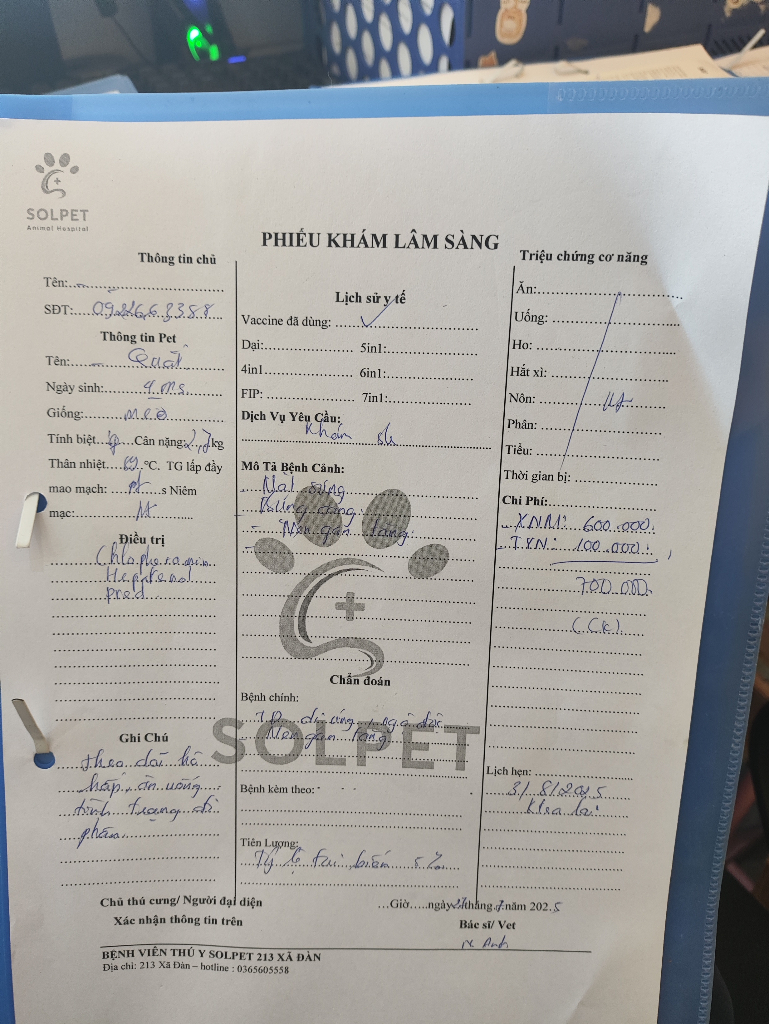 SOLPET
Animal Hospital
PHIẾU KHÁM LÂM SÀNG
Thông tin chủ
Tên:
SĐT:
Thông tin Pet
Tên: Quất
Ngày sinh: 4 ms
Giống: mèo
Tính biệt Cân nặng: 2,7kg
Thân nhiệt 39 °C. TG lấp đầy
mao mạch: s Niêm
mạc:
Điều trị
Heparenol
pred
Ghi Chú
theo dõi hô
hấp, ăn uống
tình trạng đi
phân
Lịch sử y tế
Vaccine đã dùng: ✓
Dại: 5in1:
4in1 6in1:
FIP: 7in1:
Dịch Vụ Yêu Cầu:
Khám sk
Mô Tả Bệnh Cảnh:
Mặt sưng
- Men gan tăng
Chẩn đoán
Bệnh chính:
TD dị ứng, ngộ độc
Men gan tăng
SOLPET
Bệnh kèm theo:
Tiên Lượng:
Tỷ lệ tai biến
Triệu chứng cơ năng
Ăn:
Uống:
Ho:
Hắt xì:
Nôn:
Phân:
Tiểu:
Thời gian bị:
Chi Phí:
XNM: 600.000
100.000
700.000
(CK)
Lịch hẹn:
3/8/2025
khám lại
Chủ thú cưng/ Người đại diện
Xác nhận thông tin trên
…Giờ…..ngày tháng 7 năm 2025
Bác sĩ/ Vet
Anh
BỆNH VIÊN THÚ Y SOLPET 213 XÃ ĐÀN
Địa chỉ: 213 Xã Đàn – hotline : 0365605558